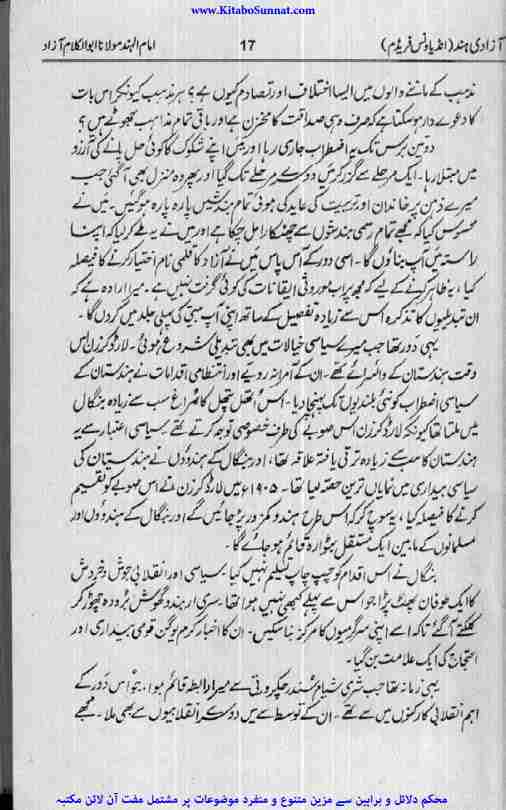 www.KitaboSunnat.com
آزادی ہند (انڈیا ونس فریڈم) 17 امام الہند مولانا ابوالکلام آزاد
مذہب کے ماننے والوں میں ایسا اختلاف اور تصادم کیوں ہے؟ ہر مذہب کیونکر اس بات
کا دعوے دار ہوسکتا ہے کہ صرف وہی صداقت کا مخزن ہے اور باقی تمام مذاہب جھوٹے ہیں؟
دو تین برس تک یہ اضطراب جاری رہا اور میں اپنے شکوک کا کوئی حل پانے کی آرزو
میں مبتلا رہا۔ ایک مرحلے سے گزر کر میں دوسرے مرحلے تک گیا اور پھر وہ منزل بھی آگئی جب
میرے ذہن پر خاندان اور تربیت کی عاید کی ہوئی تمام بندشیں پارہ پارہ ہوگئیں۔ میں نے
محسوس کیا کہ مجھے تمام رسمی بندھنوں سے چھٹکارا مل چکا ہے اور میں نے یہ طے کر لیا کہ اپنا
راستہ میں آپ بناؤں گا۔ اسی دور کے آس پاس میں نے آزاد کا قلمی نام اختیار کرنے کا فیصلہ
کیا، یہ ظاہر کرنے کے لیے کہ مجھ پر اب موروثی ایقانات کی کوئی گرفت نہیں ہے۔ میرا ارادہ ہے کہ
ان تبدیلیوں کا تذکرہ اس سے زیادہ تفصیل کے ساتھ اپنی آپ بیتی کی پہلی جلد میں کردوں گا۔
یہی دور تھا جب میرے سیاسی خیالات میں بھی تبدیلی شروع ہوئی۔ لارڈ کرزن اس
وقت ہندستان کے وائسرائے تھے۔ ان کے آمرانہ رویے اور انتظامی اقدامات نے ہندستان کے
سیاسی اضطراب کو نئی بلندیوں تک پہنچا دیا۔ اس اتھل پتھل کا سراغ سب سے زیادہ بنگال
میں ملتا تھا کیونکہ لارڈ کرزن اس صوبے کی طرف خصوصی توجہ کرتے تھے۔ سیاسی اعتبار سے یہ
ہندستان کا سب سے زیادہ ترقی یافتہ علاقہ تھا، اور بنگال کے ہندوؤں نے ہندستان کی
سیاسی بیداری میں نمایاں ترین حصہ لیا تھا۔ ۱۹۰۵ء میں لارڈ کرزن نے اس صوبے کو تقسیم
کرنے کا فیصلہ کیا، یہ سوچ کر کہ اس طرح ہندو کمزور پڑ جائیں گے اور بنگال کے ہندوؤں اور
مسلمانوں کے مابین ایک مستقل بٹوارہ قائم ہو جائے گا۔
بنگال نے اس اقدام کو چپ چاپ تسلیم نہیں کیا۔ سیاسی اور انقلابی جوش و خروش
کا ایک طوفان پھٹ پڑا جو اس سے پہلے کبھی نہیں ہوا تھا۔ سری اربندو گھوش بڑودہ چھوڑ کر
کلکتے آگئے تاکہ اسے اپنی سرگرمیوں کا مرکز بنا سکیں۔ ان کا اخبار کرم یوگن قومی بیداری اور
احتجاج کی ایک علامت بن گیا۔
یہی زمانہ تھا جب شری شیام سندر چکرورتی سے میرا رابطہ قائم ہوا، جو اس دور کے
اہم انقلابی کارکنوں میں سے تھے۔ ان کے توسط سے میں دوسرے انقلابیوں سے بھی ملا۔ مجھے
محکم دلائل و براہین سے مزین متنوع و منفرد موضوعات پر مشتمل مفت آن لائن مکتبہ